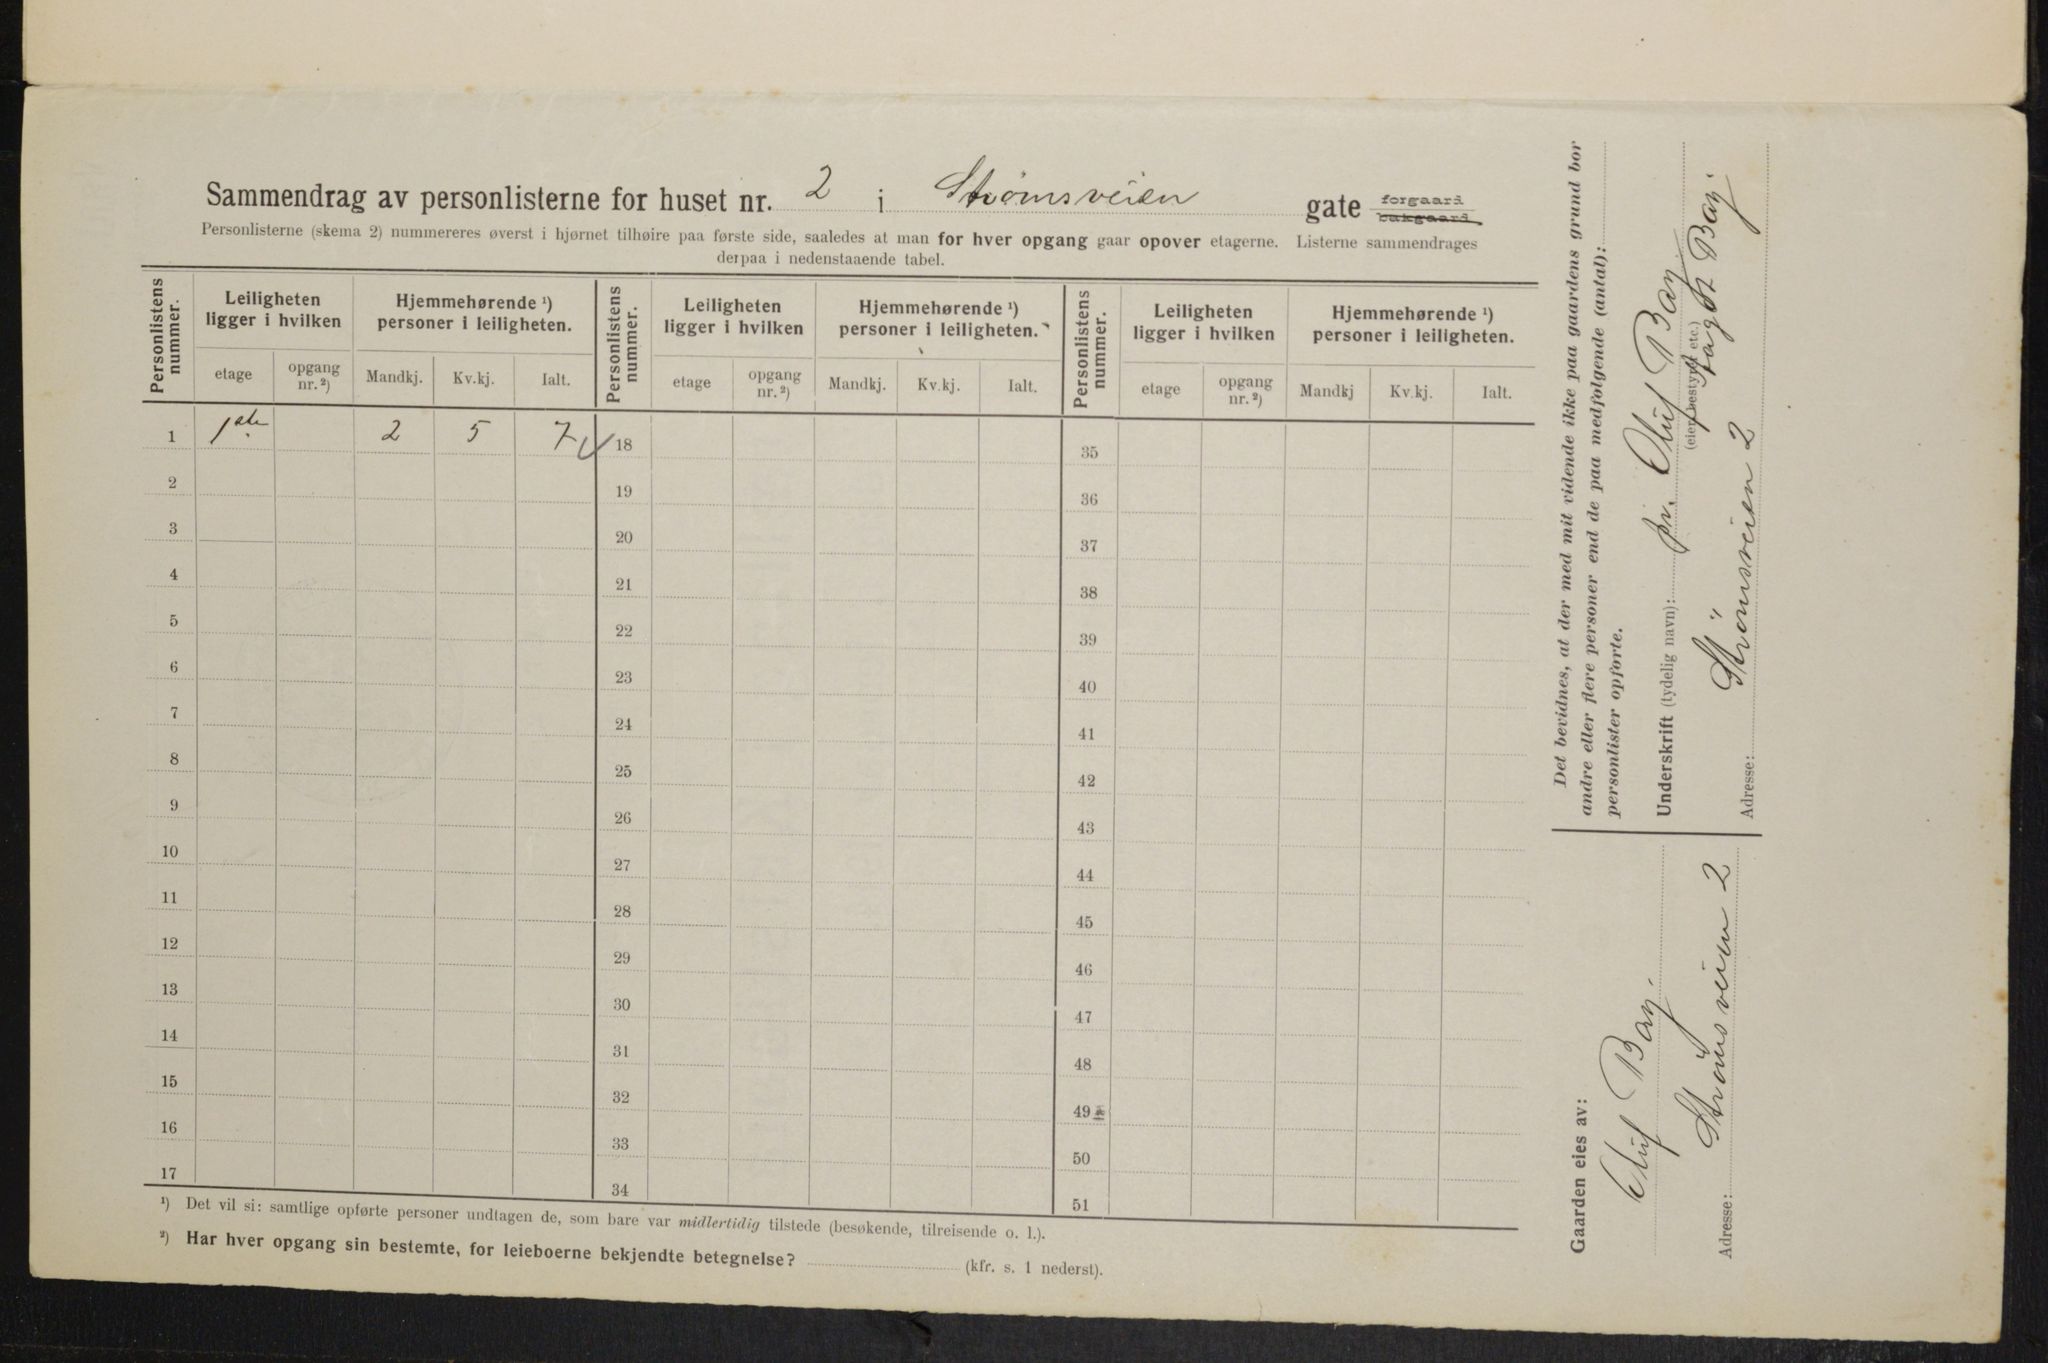 Sammendrag av personlisterne for huset nr. 2 i Strømsveien gate forgaard bakgaard
Personlisterne (skema 2) nummereres øverst i hjørnet tilhøire paa første side, saaledes at man for hver opgang gaar opover etagerne. Listerne sammendrages
derpaa i nedenstaaende tabel.
Personlistens nummer. Leiligheten ligger i hvilken Hjemmehørende ¹) personer i leiligheten. Personlistens nummer. Leiligheten ligger i hvilken Hjemmehørende ¹) personer i leiligheten. Personlistens nummer. Leiligheten ligger i hvilken Hjemmehørende ¹) personer i leiligheten.
etage opgang nr. ²) Mandkj. Kv.kj. Ialt. etage opgang nr. ²) Mandkj. Kv.kj. Ialt. etage opgang nr. ²) Mandkj Kv.kj. Ialt.
1 1ste 2 5 7 18 35
2 19 36
3 20 37
4 21 38
5 22 39
6 23 40
7 24 41
8 25 42
9 26 43
10 27 44
11 28 45
12 29 46
13 30 47
14 31 48
15 32 49
16 33 50
17 34 51
¹) Det vil si: samtlige opførte personer undtagen de, som bare var midlertidig tilstede (besøkende, tilreisende o. l.).
²) Har hver opgang sin bestemte, for leieboerne bekjendte betegnelse? (kfr. s. 1 nederst).
Det bevidnes, at der med mit vidende ikke paa gaardens grund bor
andre eller flere personer end de paa medfølgende (antal):
personlister opførte.
Underskrift (tydelig navn): pr. Oluf Bay
(eier, bestyrer etc.)
Bay.
Adresse: Strömsveien 2
Gaarden eies av:
Oluf Bay.
Adresse: Strömsveien 2